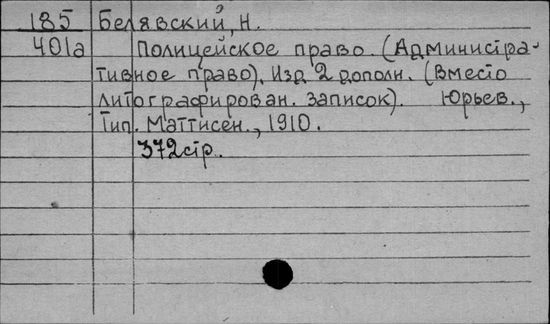 185 Белявский, Н.
401а Полицейское право. (Администра-
тивное право). Изд. 2 дополн. (Вместо
литографирован. записок). Юрьев.,
Тип. Маттисен., 1910.
372стр.